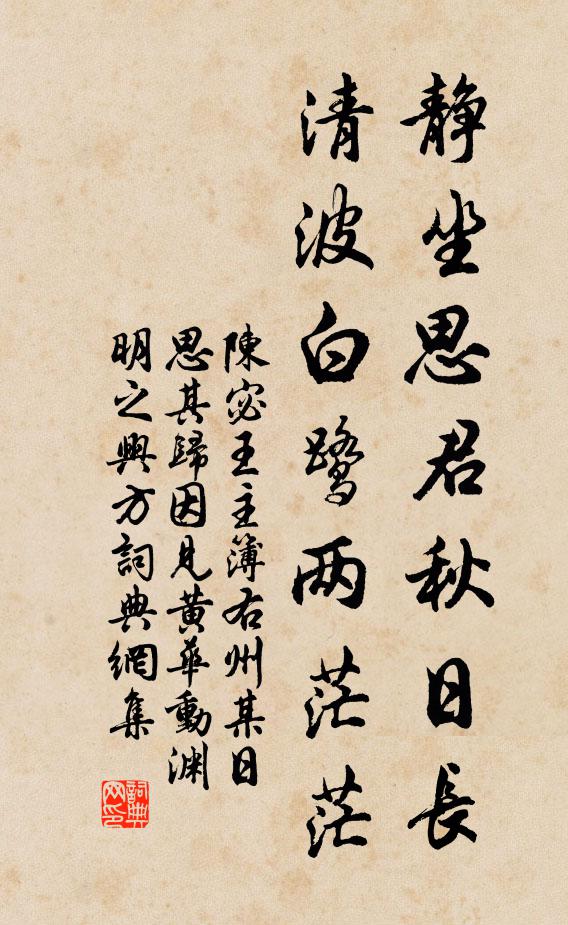 静坐思君秋日長
清波白鹭两茫茫
陳宓王主簿右州某日
思其歸因見黄華動渊
明之興方詞典網集
詞典
网印